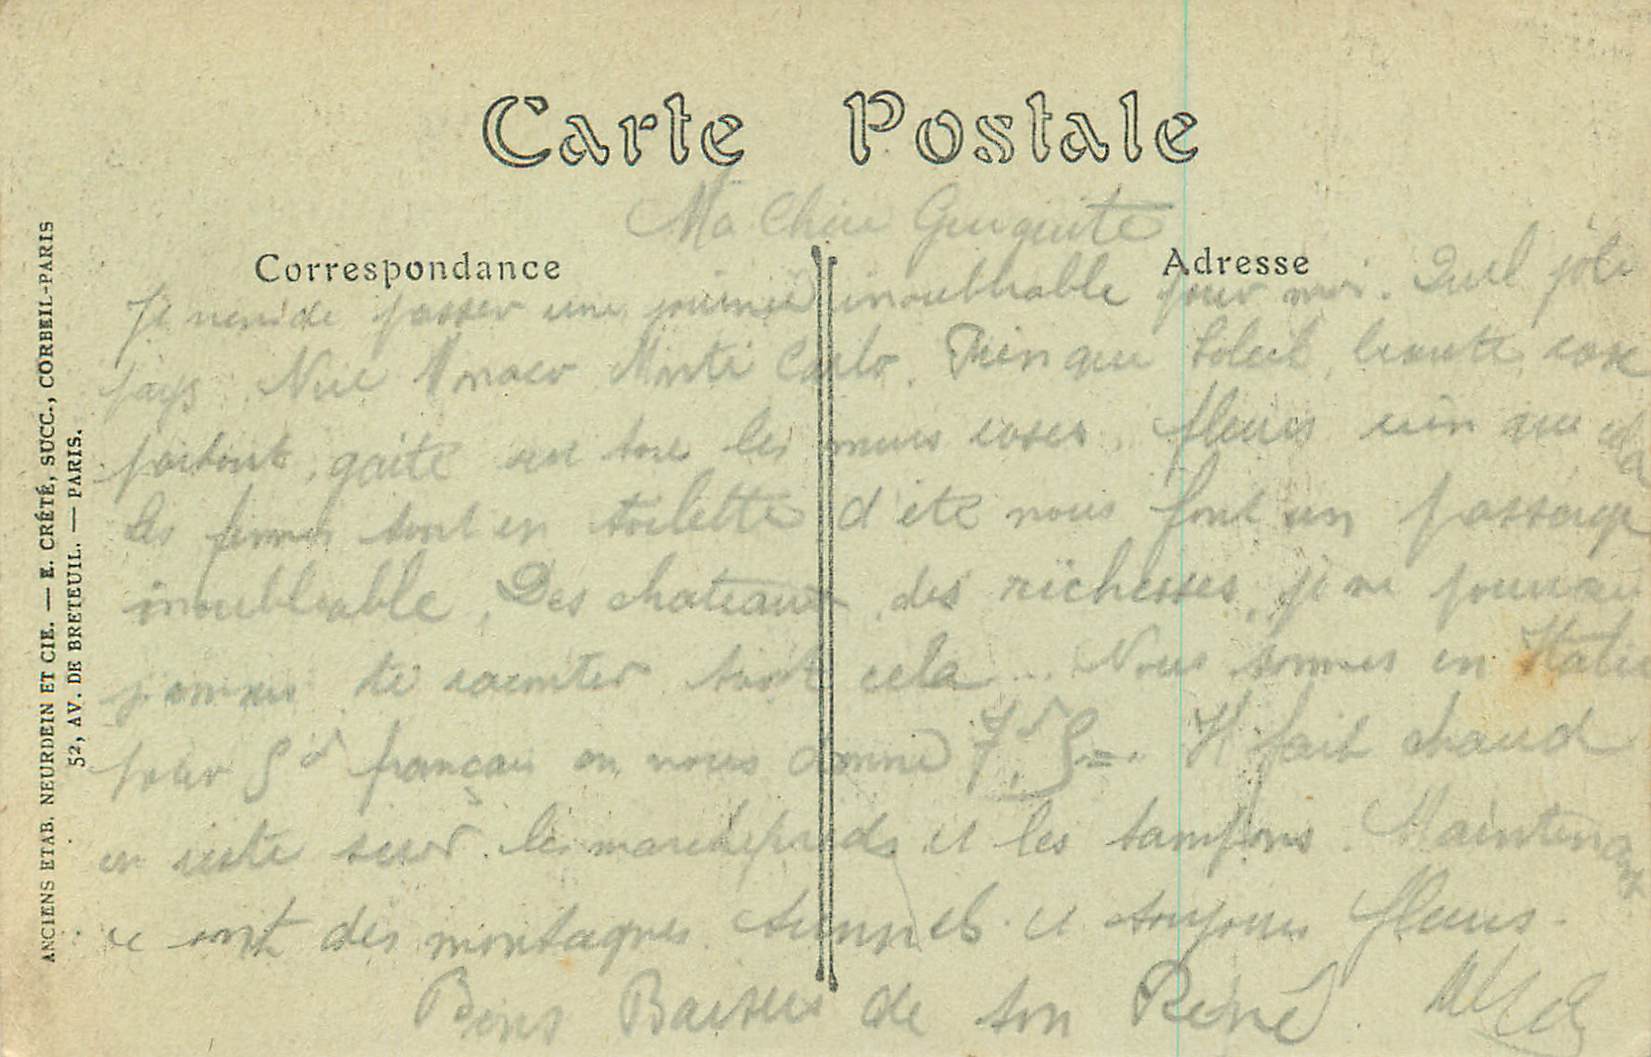 Carte Postale
Ma Chère
Correspondance
Adresse
Je viens de passer une journée inoubliable pour moi. Quel joli
pays. Nice Monaco Monte Carlo. Rien que Soleil, beauté, rose
partout, gaité sur tous les murs roses, fleurs rien que
les femmes sont en toilette d'été nous font un passage
inoubliable. Des chateaux, des richesses, je ne pourrai
jamais te raconter tout cela... Nous sommes en Italie
pour français on nous donne Il fait chaud
on reste sur les marchepieds et les tampons. Maintenant
ce sont des montagnes tunnels et toujours fleurs.
Bons Baisers de ton René
ANCIENS ETAB. NEURDEIN ET CIE. — E. CRÉTÉ, SUCC., CORBEIL-PARIS
52, AV. DE BRETEUIL. — PARIS.